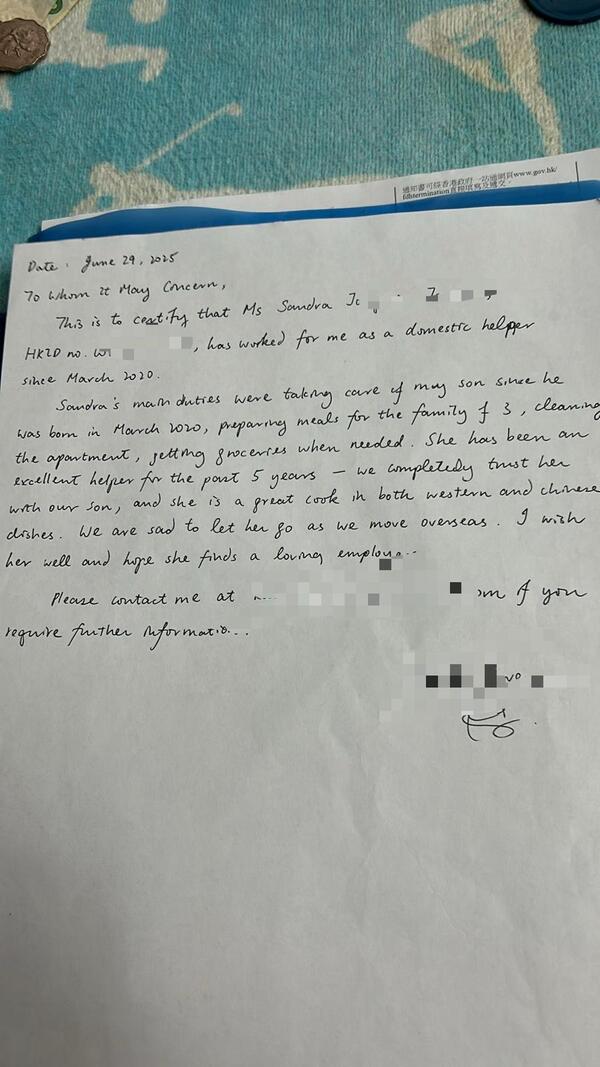 通知書可經香港政府一站通網頁www.gov.hk/
fdhtermination直接填寫及遞交。
Date: June 29, 2025
To Whom It May Concern,
This is to certify that Ms Sandra
HKID no. , has worked for me as a domestic helper
since March 2020.
Sandra's main duties were taking care of my son since he
was born in March 2020, preparing meals for the family of 3, cleaning
the apartment, getting groceries when needed. She has been an
excellent helper for the past 5 years – we completely trust her
with our son, and she is a great cook in both western and chinese
dishes. We are sad to let her go as we move overseas. I wish
her well and hope she finds a loving
Please contact me at if you
require further